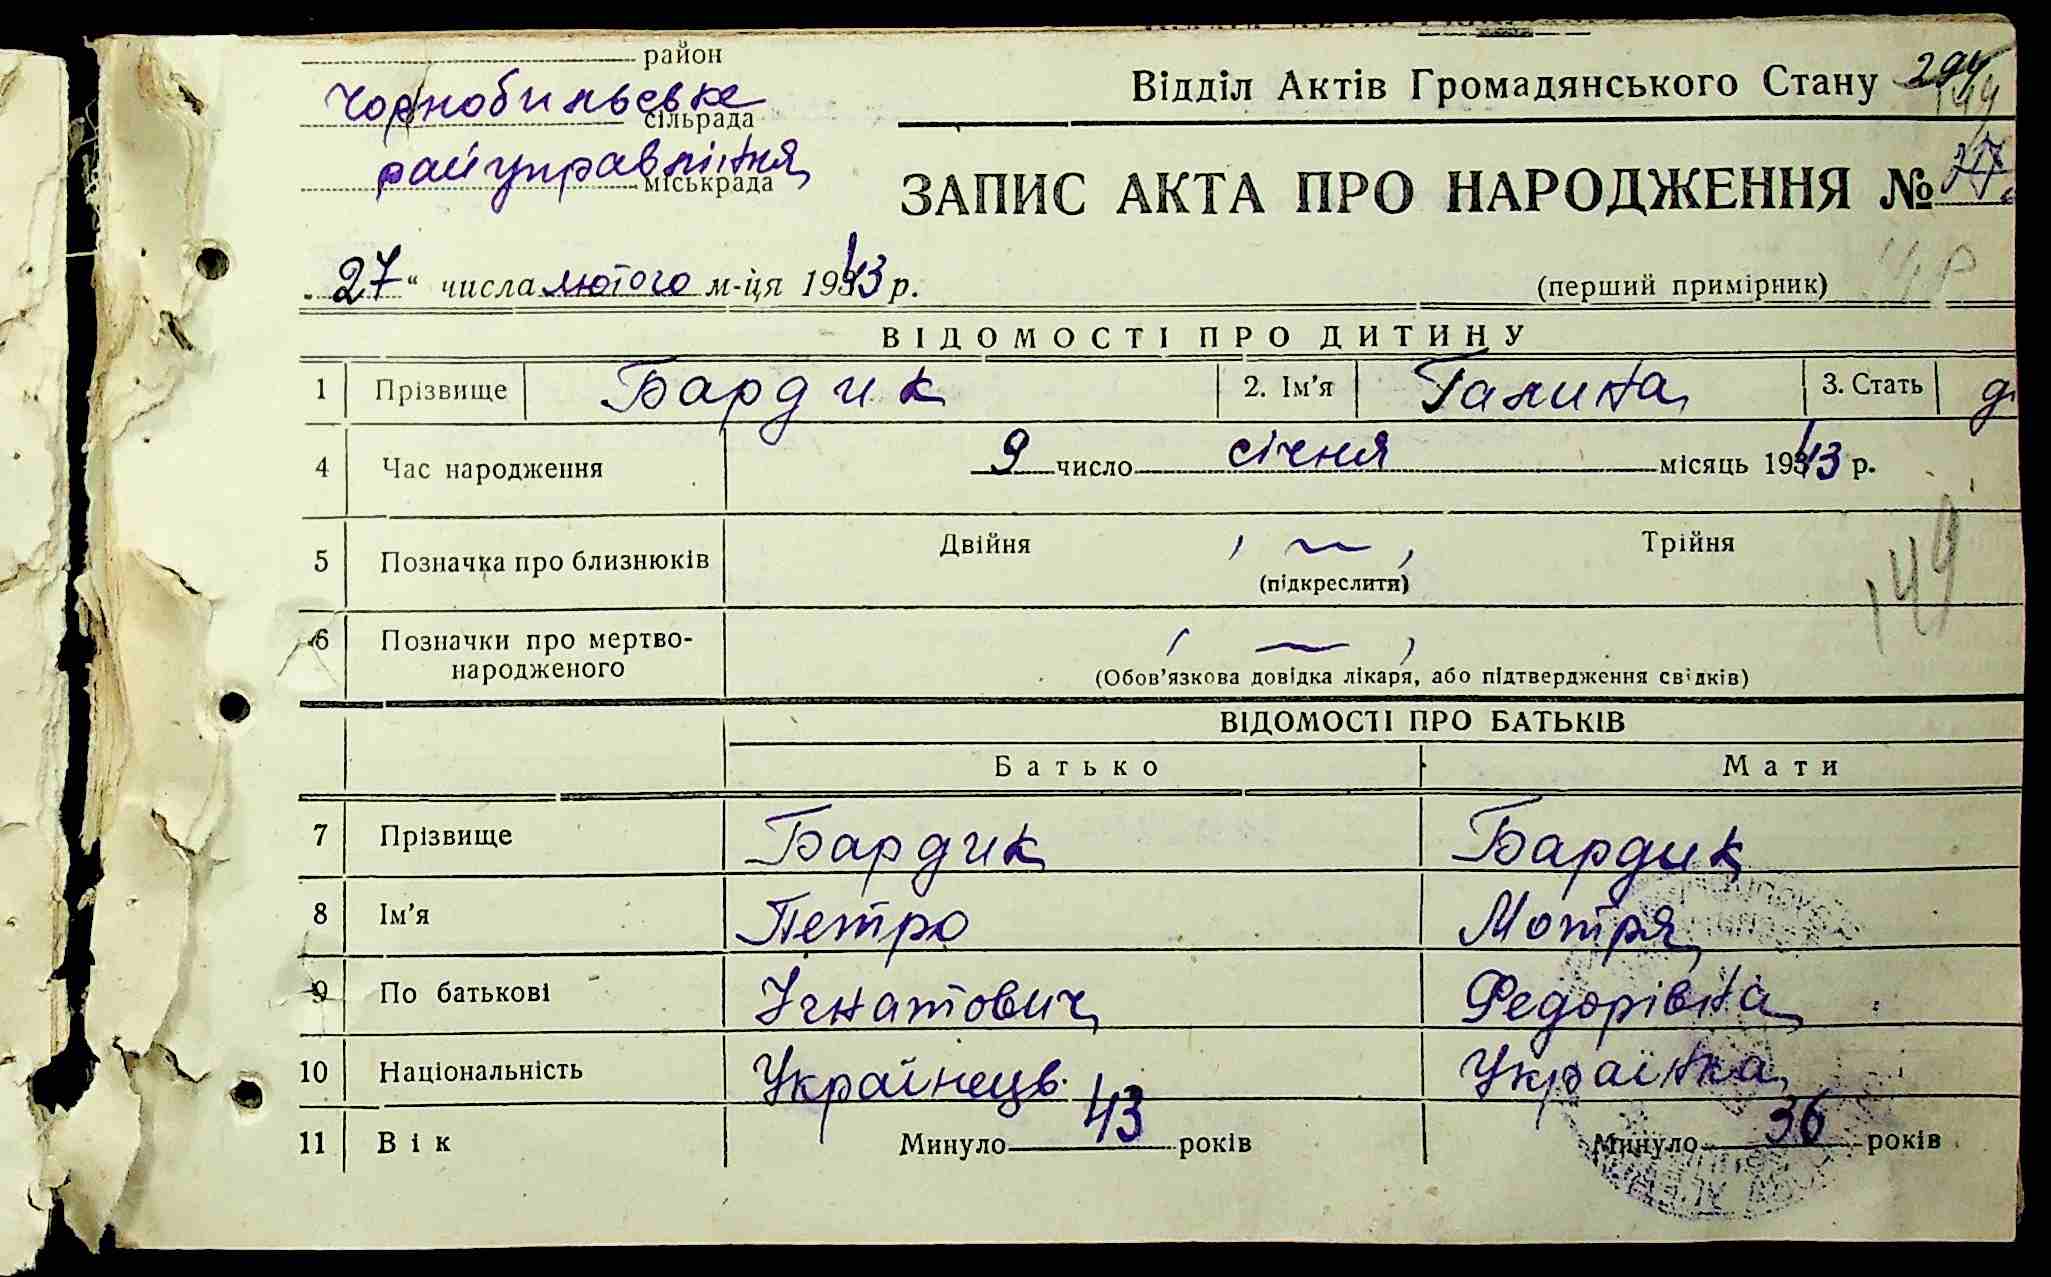 район
Чорнобильське
сільрада
райуправління
міськрада
Відділ Актів Громадянського Стану
ЗАПИС АКТА ПРО НАРОДЖЕННЯ №
„27“ числа лютого м-ця 1943 р.
(перший примірник)
ВІДОМОСТІ ПРО ДИТИНУ
1 Прізвище Бардик 2. Ім'я Галина 3. Стать
4 Час народження 9 число січня місяць 1943 р.
5 Позначка про близнюків Двійня Трійня
(підкреслити)
149
6 Позначки про мертво-
народженого
(Обов'язкова довідка лікаря, або підтвердження свідків)
ВІДОМОСТІ ПРО БАТЬКІВ
Батько Мати
7 Прізвище Бардик Бардик
8 Ім'я Петро Мотря
9 По батькові Ігнатович Федорівна
10 Національність Українець Українка
11 Вік Минуло 43 років Минуло 36 років